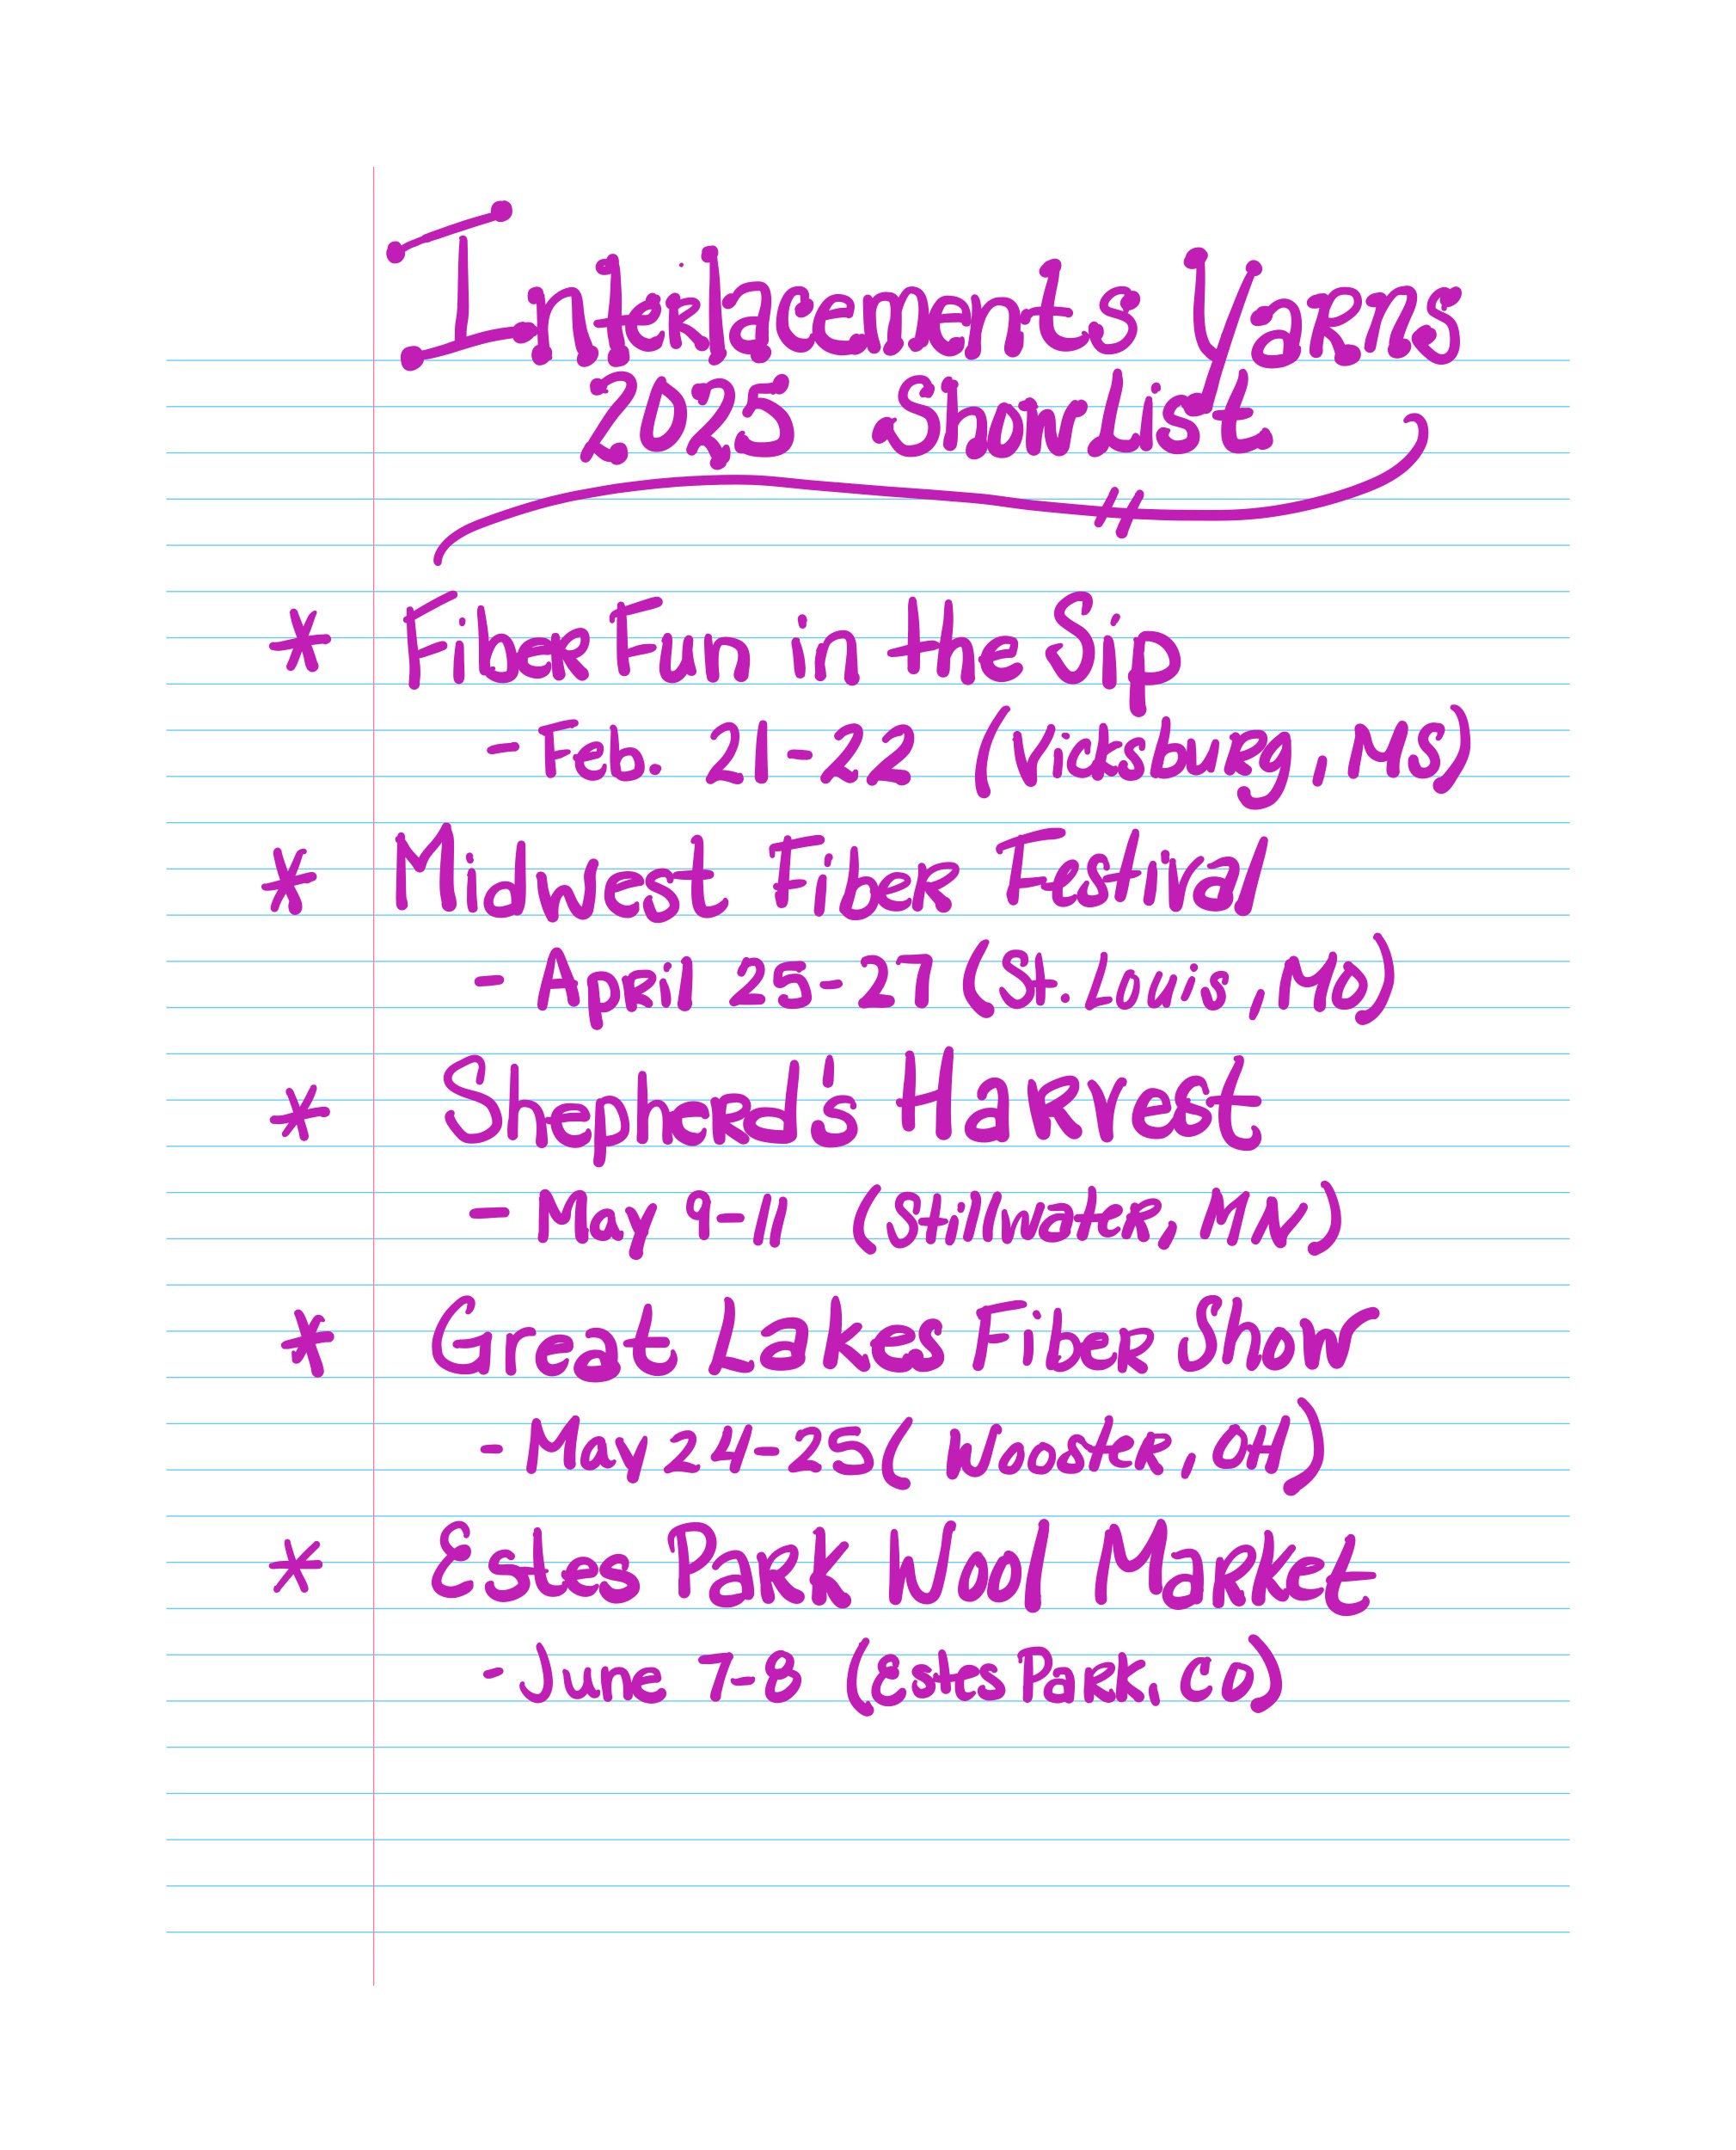 Interlacements Yarns
2025 Show List
* Fiber Fun in the Sip
- Feb. 21-22 (Vicksburg, MS)
* Midwest Fiber Festival
- April 25-27 (St. Louis, MO)
* Shepherd's Harvest
- May 9-11 (Stillwater, MN)
* Great Lakes Fiber Show
- May 24-25 (Wooster, OH)
* Estes Park Wool Market
- June 7-8 (Estes Park, CO)